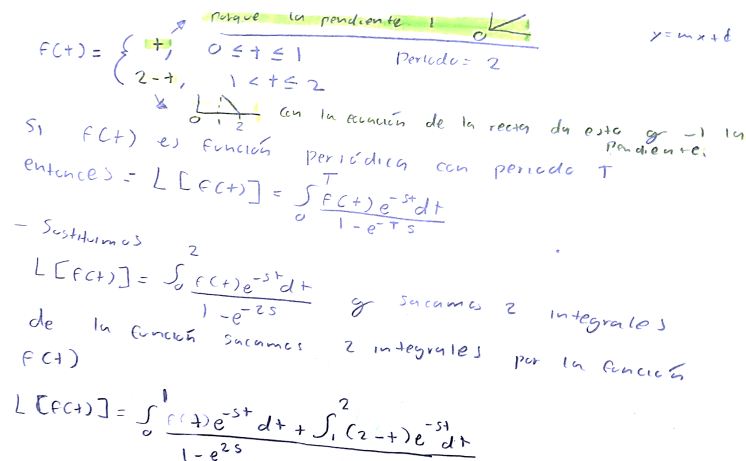 porque la pendiente 1
0
y = mx + d
f(t) = { t, 0 ≤ t ≤ 1 Periodo = 2
2 - t, 1 < t ≤ 2
0 1 2 con la ecuación de la recta da esto y -1 la pendiente.
Si f(t) es función periódica con periodo T
entonces = L[f(t)] = ∫₀ᵀ f(t) e^-st dt / 1 - e^-Ts
- Sustituimos
L[f(t)] = ∫₀² f(t) e^-st dt / 1 - e^-2s y sacamos 2 integrales
de la función sacamos 2 integrales por la función
f(t)
L[f(t)] = ∫₀¹ f(t) e^-st dt + ∫₁² (2-t) e^-st dt / 1 - e^2s